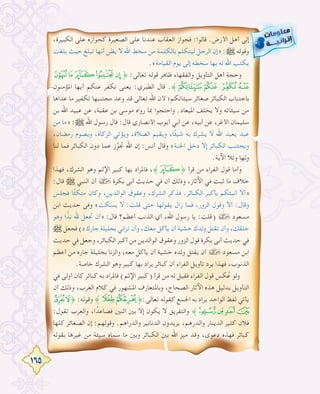 معلومات
إثرائية
إلى أهل الأرض. قالوا: فجواز العقاب عندنا على الصغيرة كجوازه على الكبيرة.
وقوله ﷺ: «إن الرجل ليتكلم بالكلمة من سخط الله لا يظن أنها تبلغ حيث بلغت
يكتب الله له بها سخطه إلى يوم القيامة».
وحجة أهل التأويل والفقهاء ظاهر قوله تعالى: ﴿إِن تَجْتَنِبُوا كَبَائِرَ مَا تُنْهَوْنَ
عَنْهُ نُكَفِّرْ عَنكُمْ سَيِّئَاتِكُمْ﴾. قال الطبري: يعني نكفر عنكم أيها المؤمنون
باجتناب الكبائر صغائر سيئاتكم؛ لأن الله تعالى قد وعد مجتنبها تكفير ما عداها
من سيئاته ولا يخلف الميعاد. واحتجوا بما رواه موسى بن عقبة، عن عبيد الله بن
سليمان الأغر، عن أبيه، عن أبي أيوب الأنصاري قال: قال رسول الله ﷺ: «ما من
عبد يعبد الله لا يشرك به شيئا، ويقيم الصلاة، ويؤتي الزكاة، ويصوم رمضان،
ويجتنب الكبائر إلا دخل الجنة» وقال أنس: إن الله تجوز عما دون الكبائر فما لنا
ولها وتلا الآية.
وأما قول الفراء من قرأ ﴿كَبَائِرَ﴾، فالمراد بها كبير الإثم وهو الشرك، فهذا
خلاف ما ثبت في الآثار، وذلك أن في حديث أبي بكرة أن النبي ﷺ قال:
«ألا أنبئكم بأكبر الكبائر. فذكر الشرك، وعقوق الوالدين، وكان متكئا فجلس
وقال: ألا وقول الزور، فما زال يقولها حتى قلت: لا يسكت» وفي حديث ابن
مسعود قلت: يا رسول الله، أي الذنب أعظم؟ قال: «أن تجعل لله ندا وهو
خلقك، وأن تقتل ولدك خشية أن يأكل معك، وأن تزاني بحليلة جارك» فجعل ﷺ
في حديث أبي بكرة قول الزور وعقوق الوالدين من أكبر الكبائر، وجعل في حديث
ابن مسعود أن يقتل ولده خشية أن يأكل معه، والزنا بحليلة جاره من أعظم
الذنوب، فهذا يرد تأويل الفراء أن كبائر يراد بها كبير وهو الشرك خاصة.
ولو عكس قول الفراء فقيل له من قرأ (كبير الإثم) فالمراد به كبائر كان أولى في
التأويل بدليل هذه الآثار الصحاح، وبالمتعارف المشهور في كلام العرب، وذلك أن
يأتي لفظ الواحد يراد به الجمع كقوله تعالى: ﴿يُخْرِجُكُمْ طِفْلًا﴾ وقوله: ﴿لَا نُفَرِّقُ
بَيْنَ أَحَدٍ مِّن رُّسُلِهِ﴾ والتفريق لا يكون إلا بين اثنين فصاعدا، والعرب تقول:
فلان كثير الدينار والدرهم، يريدون الدنانير والدراهم. وقولهم: إن الصغائر كلها
كبائر فهذه دعوى، وقد ميز الله بين الكبائر وبين ما سماه سيئة من غيرها بقوله
١٦٥